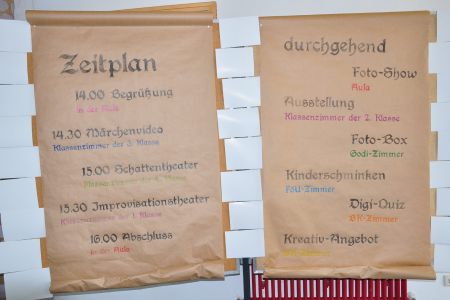 Zeitplan
14.00 Begrüßung
in der Aula
14.30 Märchenvideo
Klassenzimmer der 3. Klasse
15.00 Schattentheater
Klassenzimmer der 4. Klasse
15.30 Improvisationstheater
Klassenzimmer der 1. Klasse
16.00 Abschluss
in der Aula
durchgehend
Foto-Show
Aula
Ausstellung
Klassenzimmer der 2. Klasse
Foto-Box
Godi-Zimmer
Kinderschminken
FSU-Zimmer
Digi-Quiz
BK-Zimmer
Kreativ-Angebot
BK-Zimmer